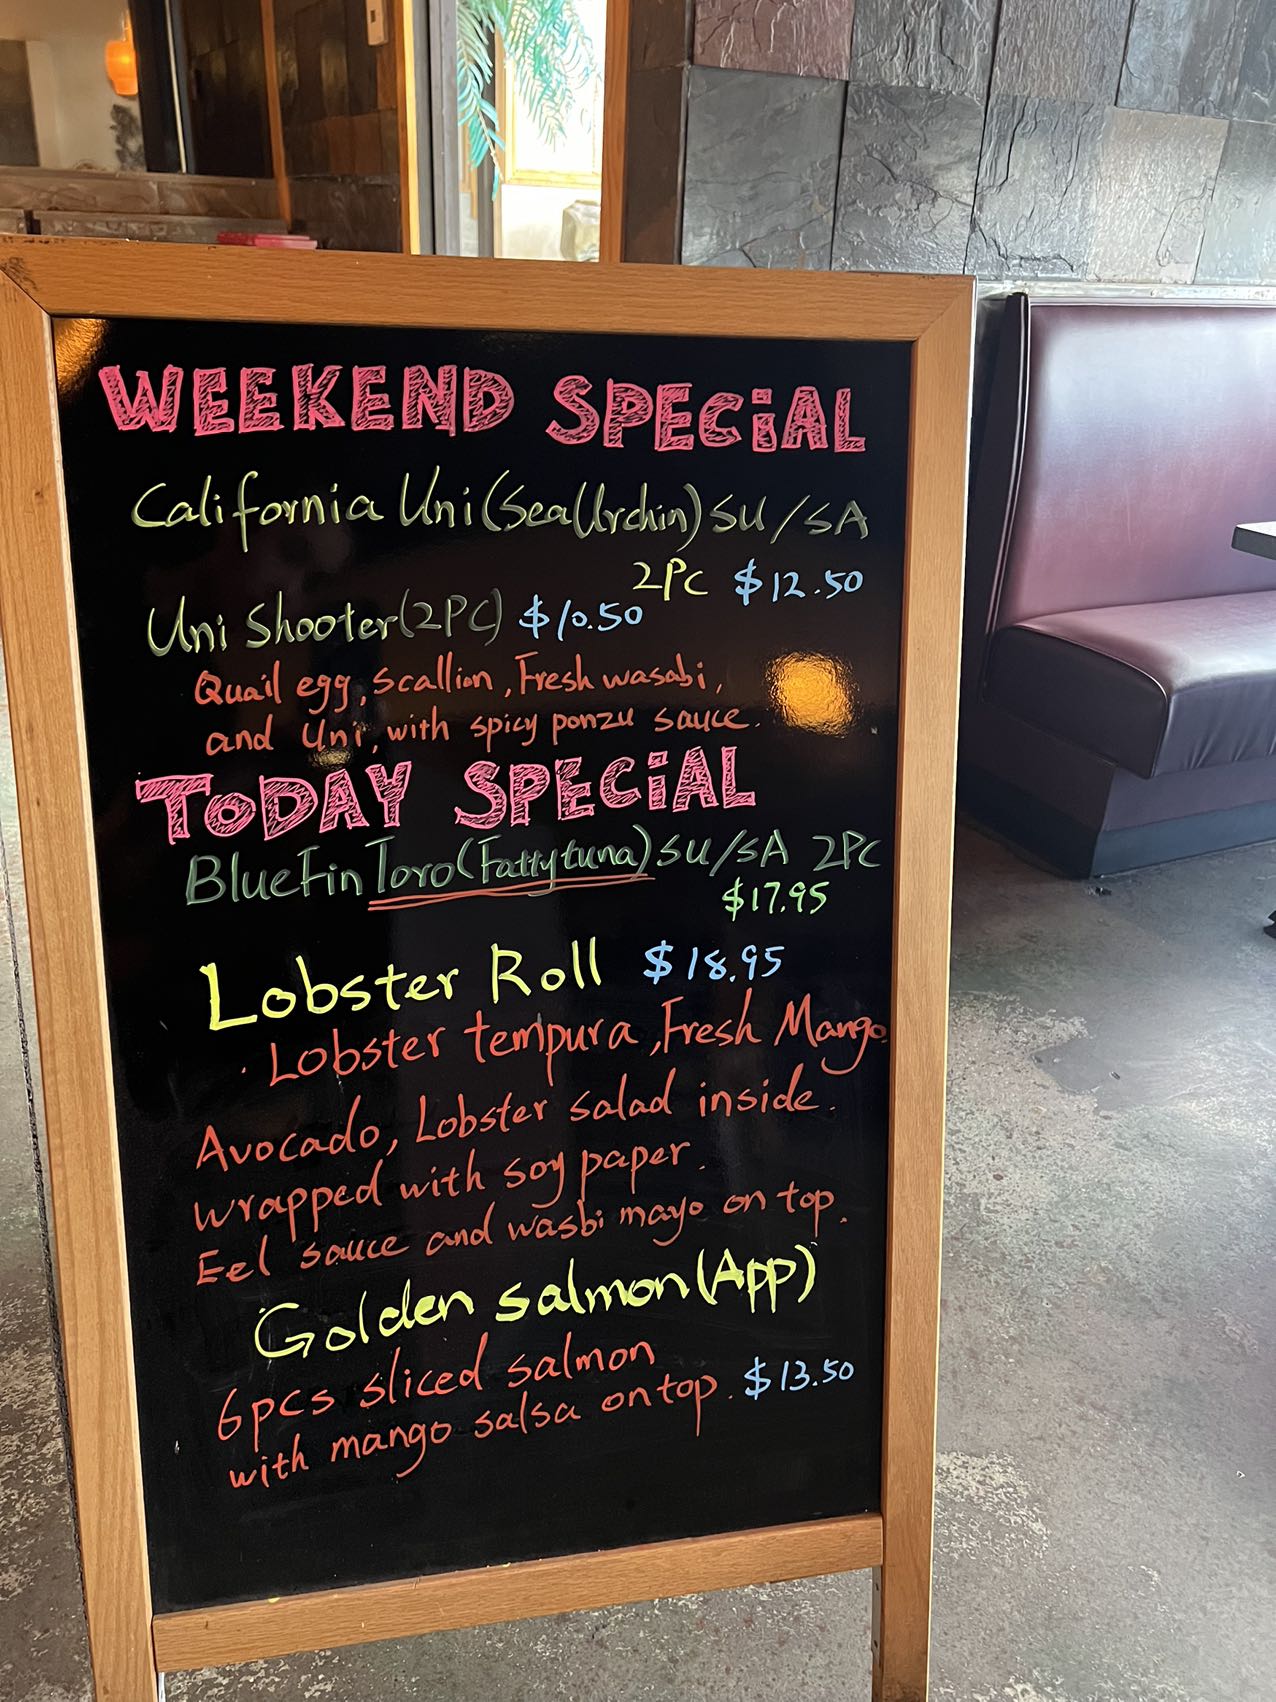 WEEKEND SPECiAL
California Uni (Sea Urchin) SU/SA
2PC $12.50
Uni Shooter (2PC) $10.50
Quail egg, scallion, Fresh wasabi,
and Uni, with spicy ponzu sauce.
ToDAY SPECiAL
BlueFin Toro (Fatty tuna) SU/SA 2PC
$17.95
Lobster Roll $18.95
. Lobster tempura, Fresh Mango.
Avocado, Lobster salad inside.
wrapped with soy paper.
Eel sauce and wasbi mayo on top.
Golden salmon (App)
6pcs sliced salmon
with mango salsa on top. $13.50